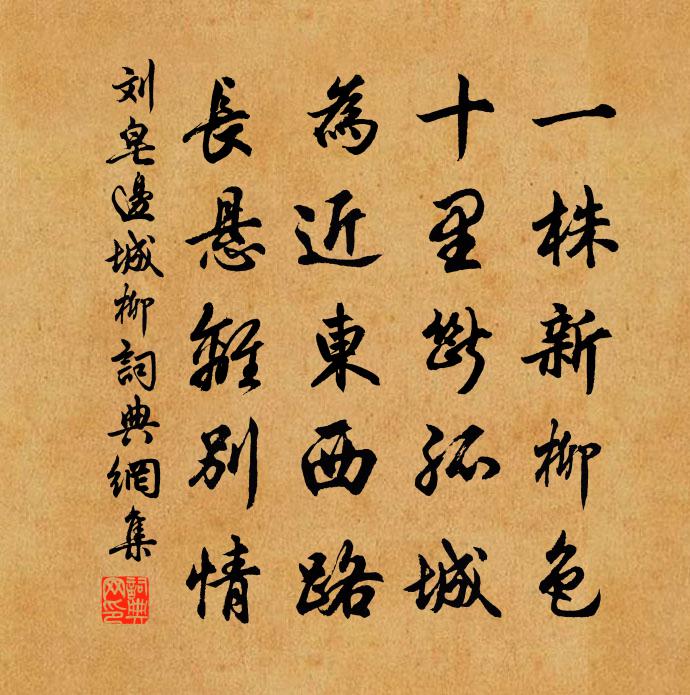 一株新柳色
十里斷孤城
為近東西路
長悬離別情
刘皂邊城柳詞典網集
詞典网印